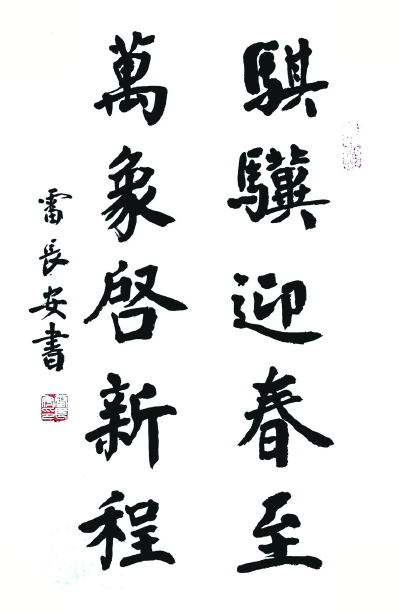 騏驥迎春至
萬象啓新程
雷長安書